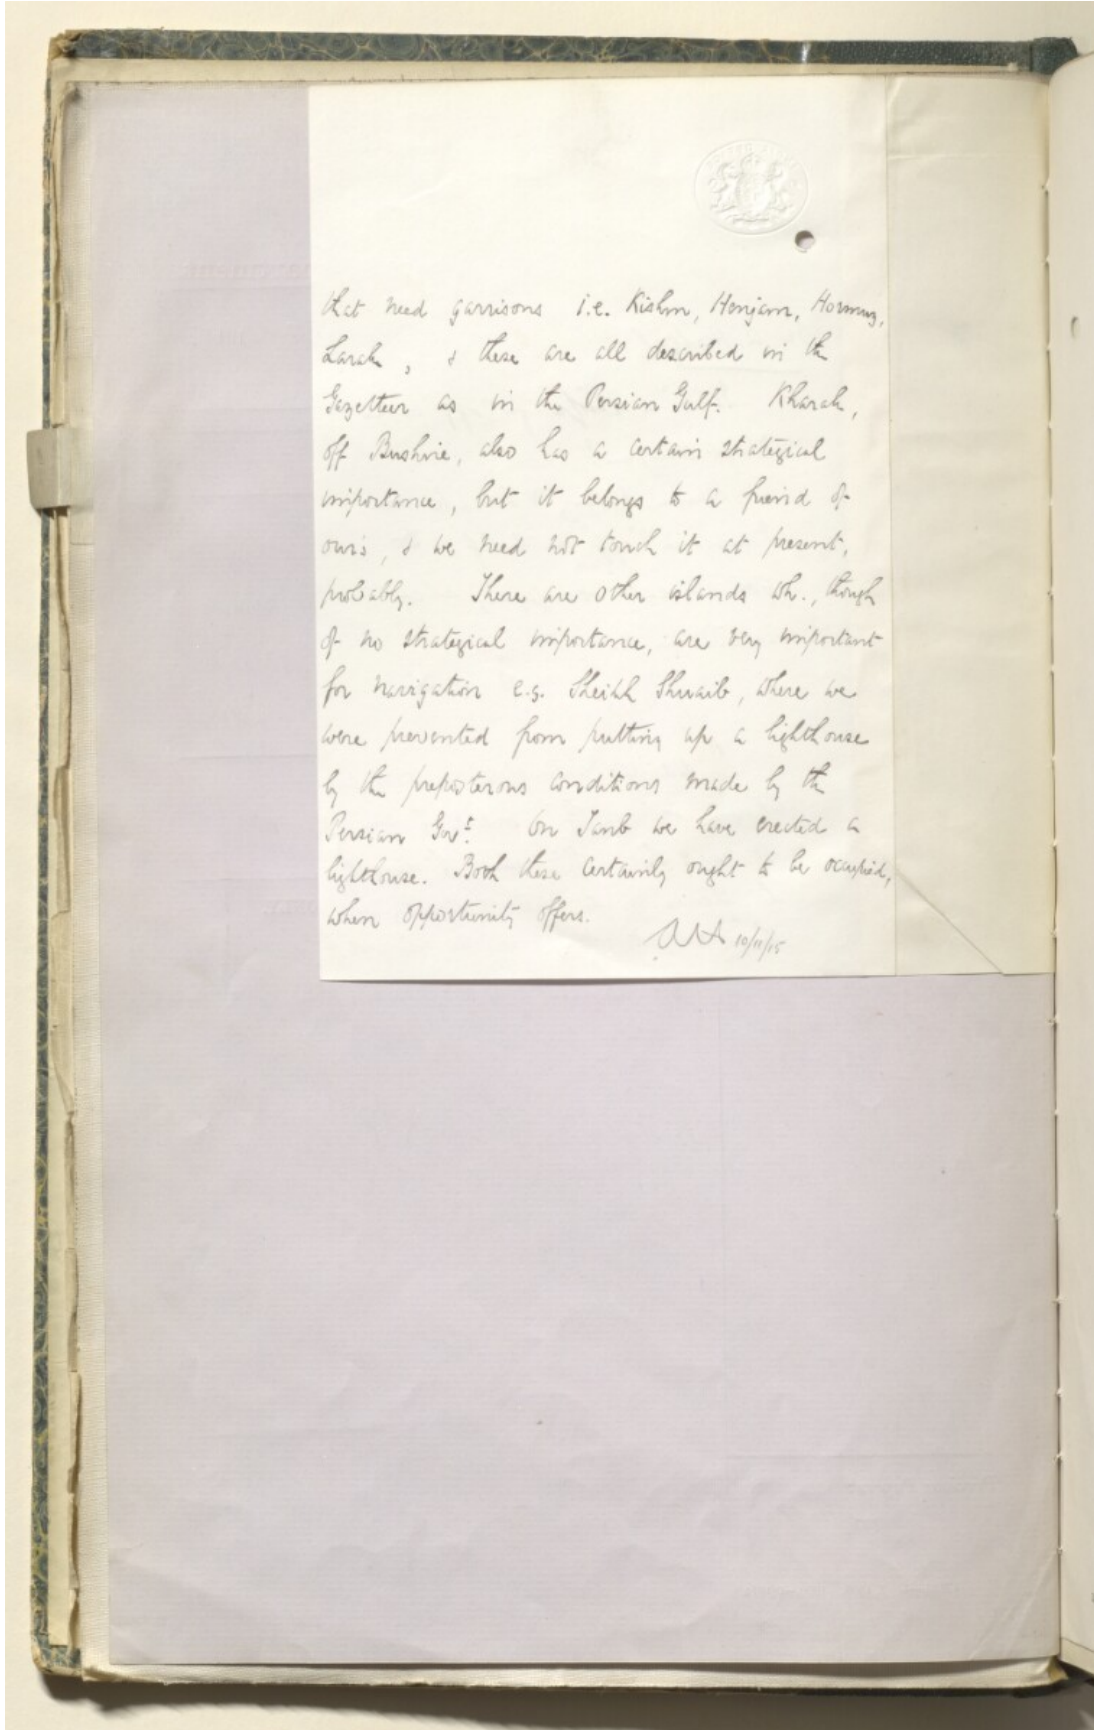 that need garrisons i.e. Kishm, Henjam, Hormuz,
Larak, & these are all described in the
Gazetteer as in the Persian Gulf. Kharak,
off Bushire, also has a certain strategical
importance, but it belongs to a friend of
our's, & we need not touch it at present,
probably. There are other islands wh., though
of no strategical importance, are very important
for navigation e.g. Sheikh Shuaib, where we
were prevented from putting up a lighthouse
by the preposterous conditions made by the
Persian Govt. On Tanb we have erected a
lighthouse. Both these certainly ought to be occupied,
when opportunity offers.
10/11/15